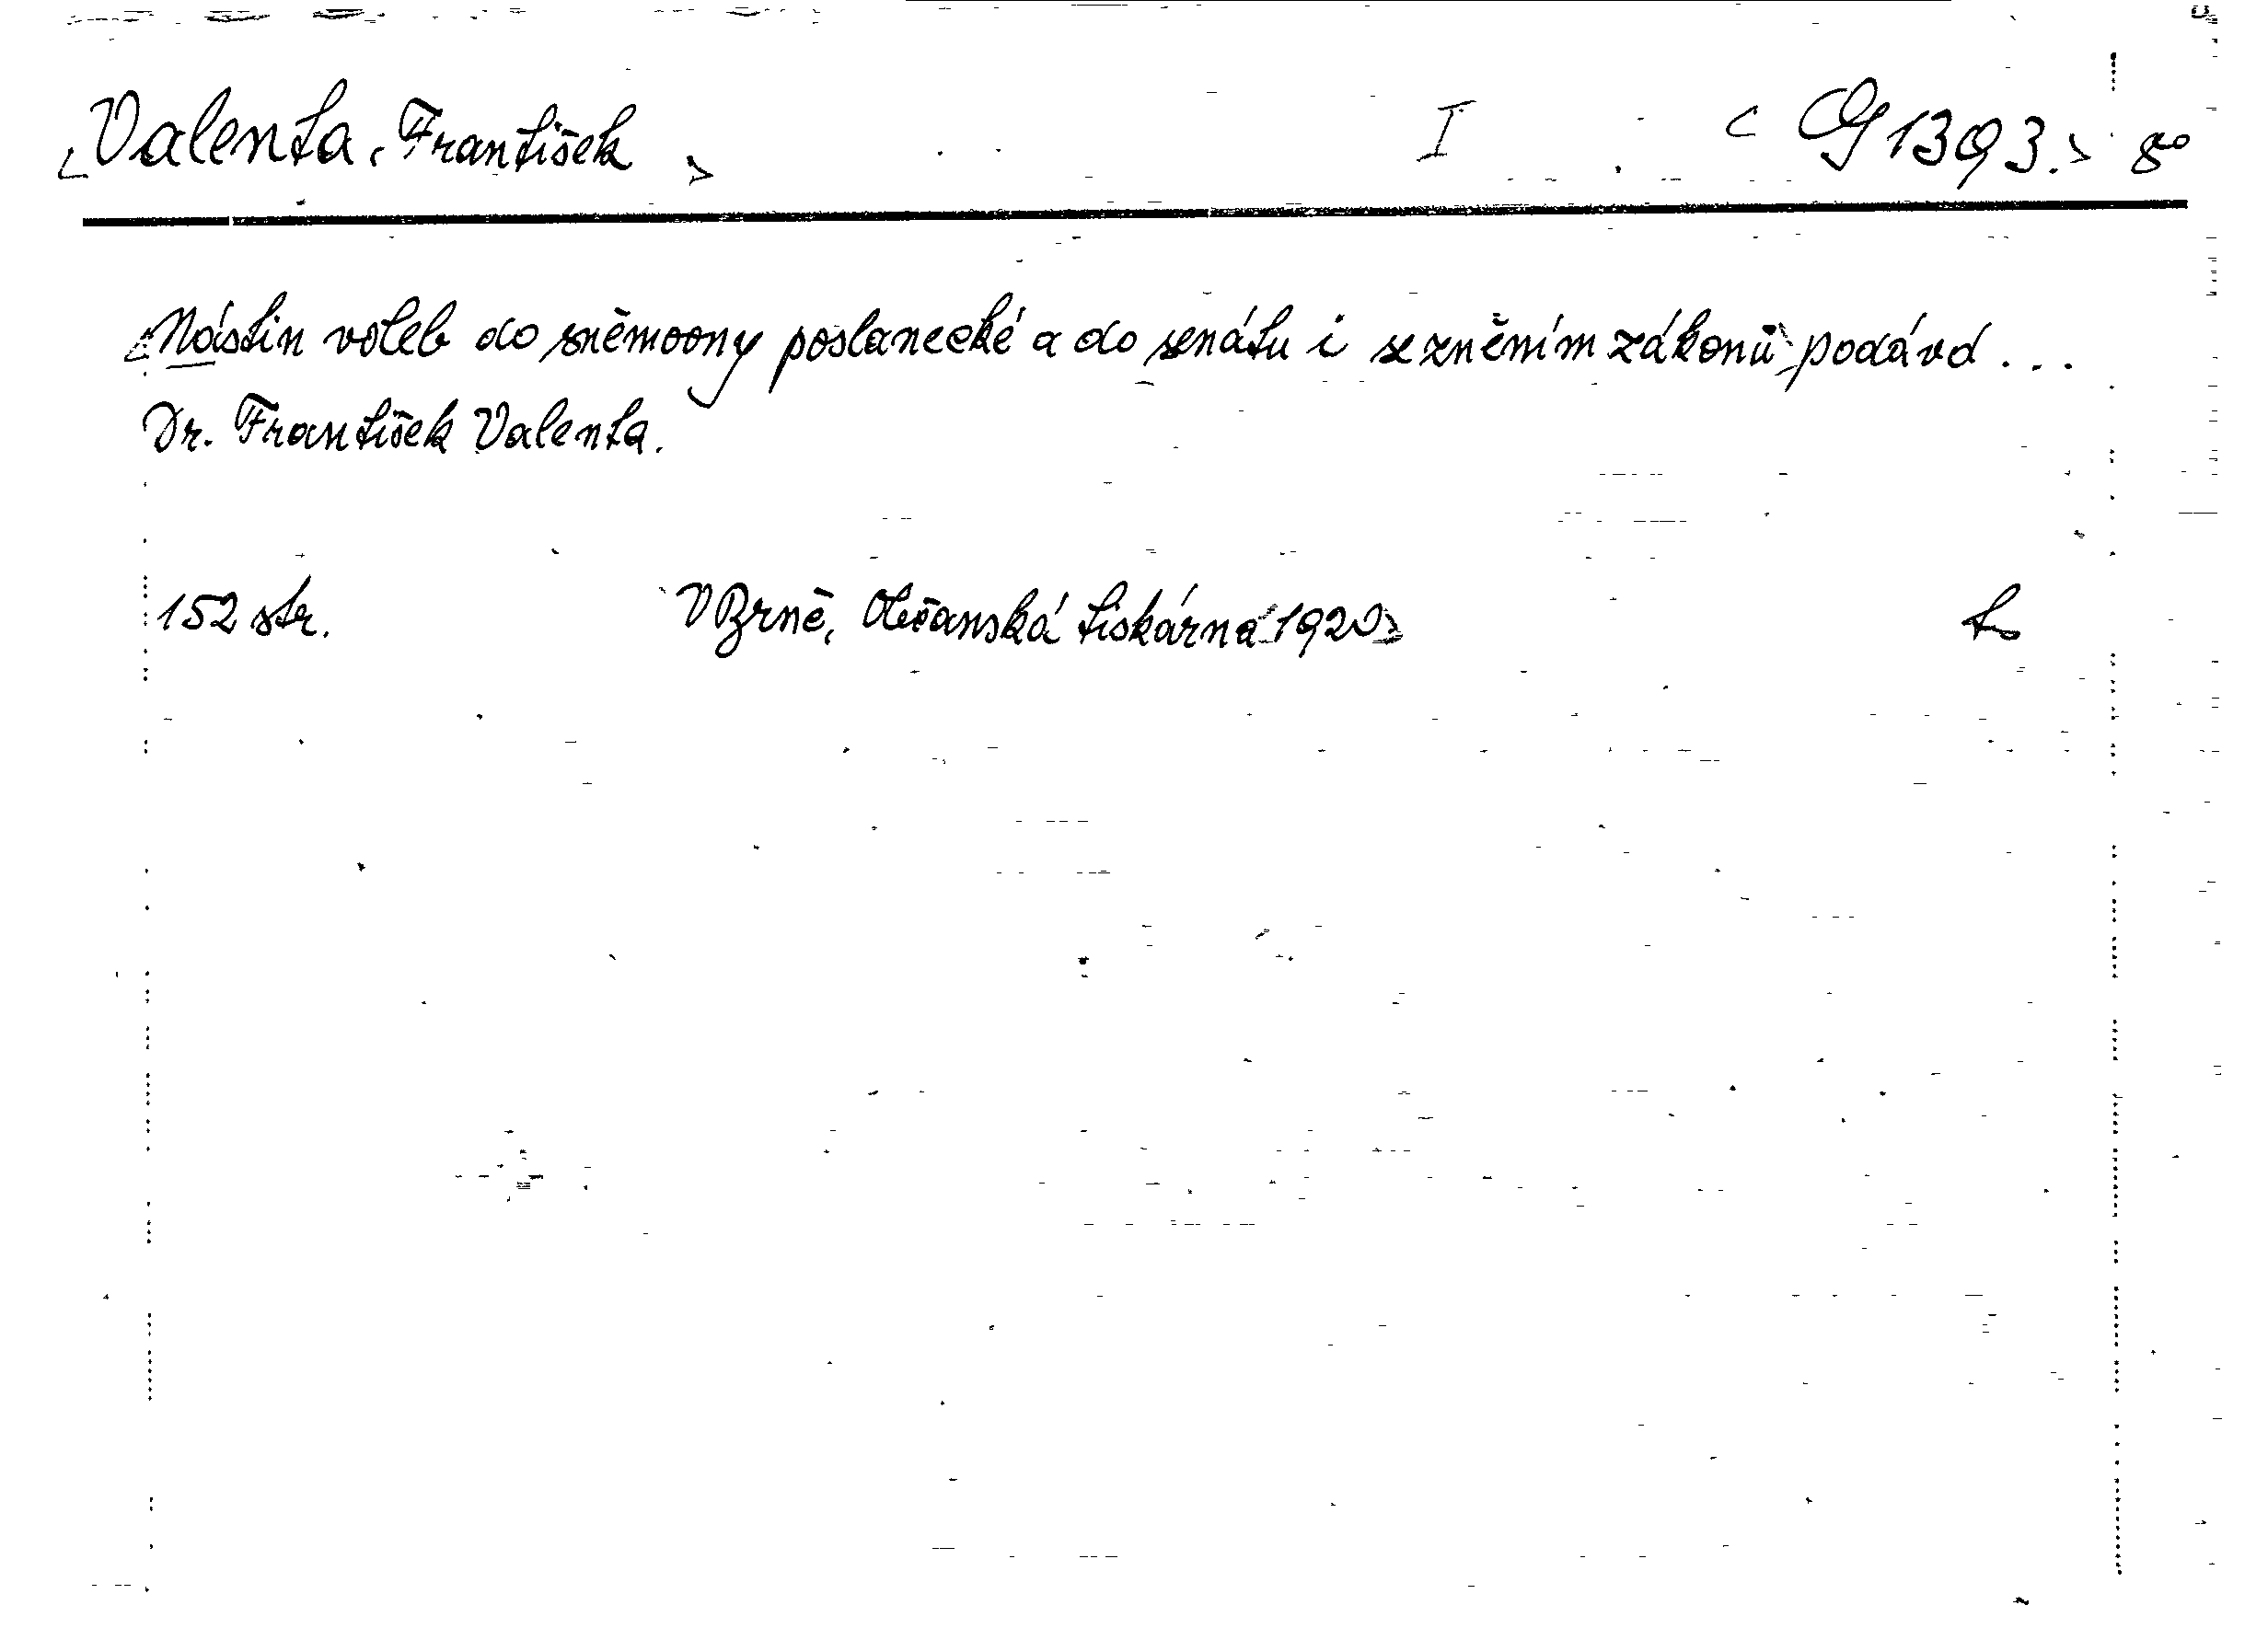 Valenta, František I G 1393. 8°
Nástin voleb do sněmovny poslanecké a do senátu i se zněním zákonů podává ...
Dr. František Valenta.
152 str. V Brně, Občanská tiskárna 1920